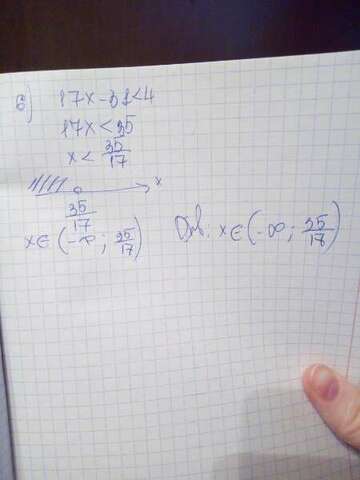 б) 17x-31<4
17x<35
x< 35/17
x
35/17
x∈(-∞; 35/17)
Отв. x∈(-∞; 35/17)